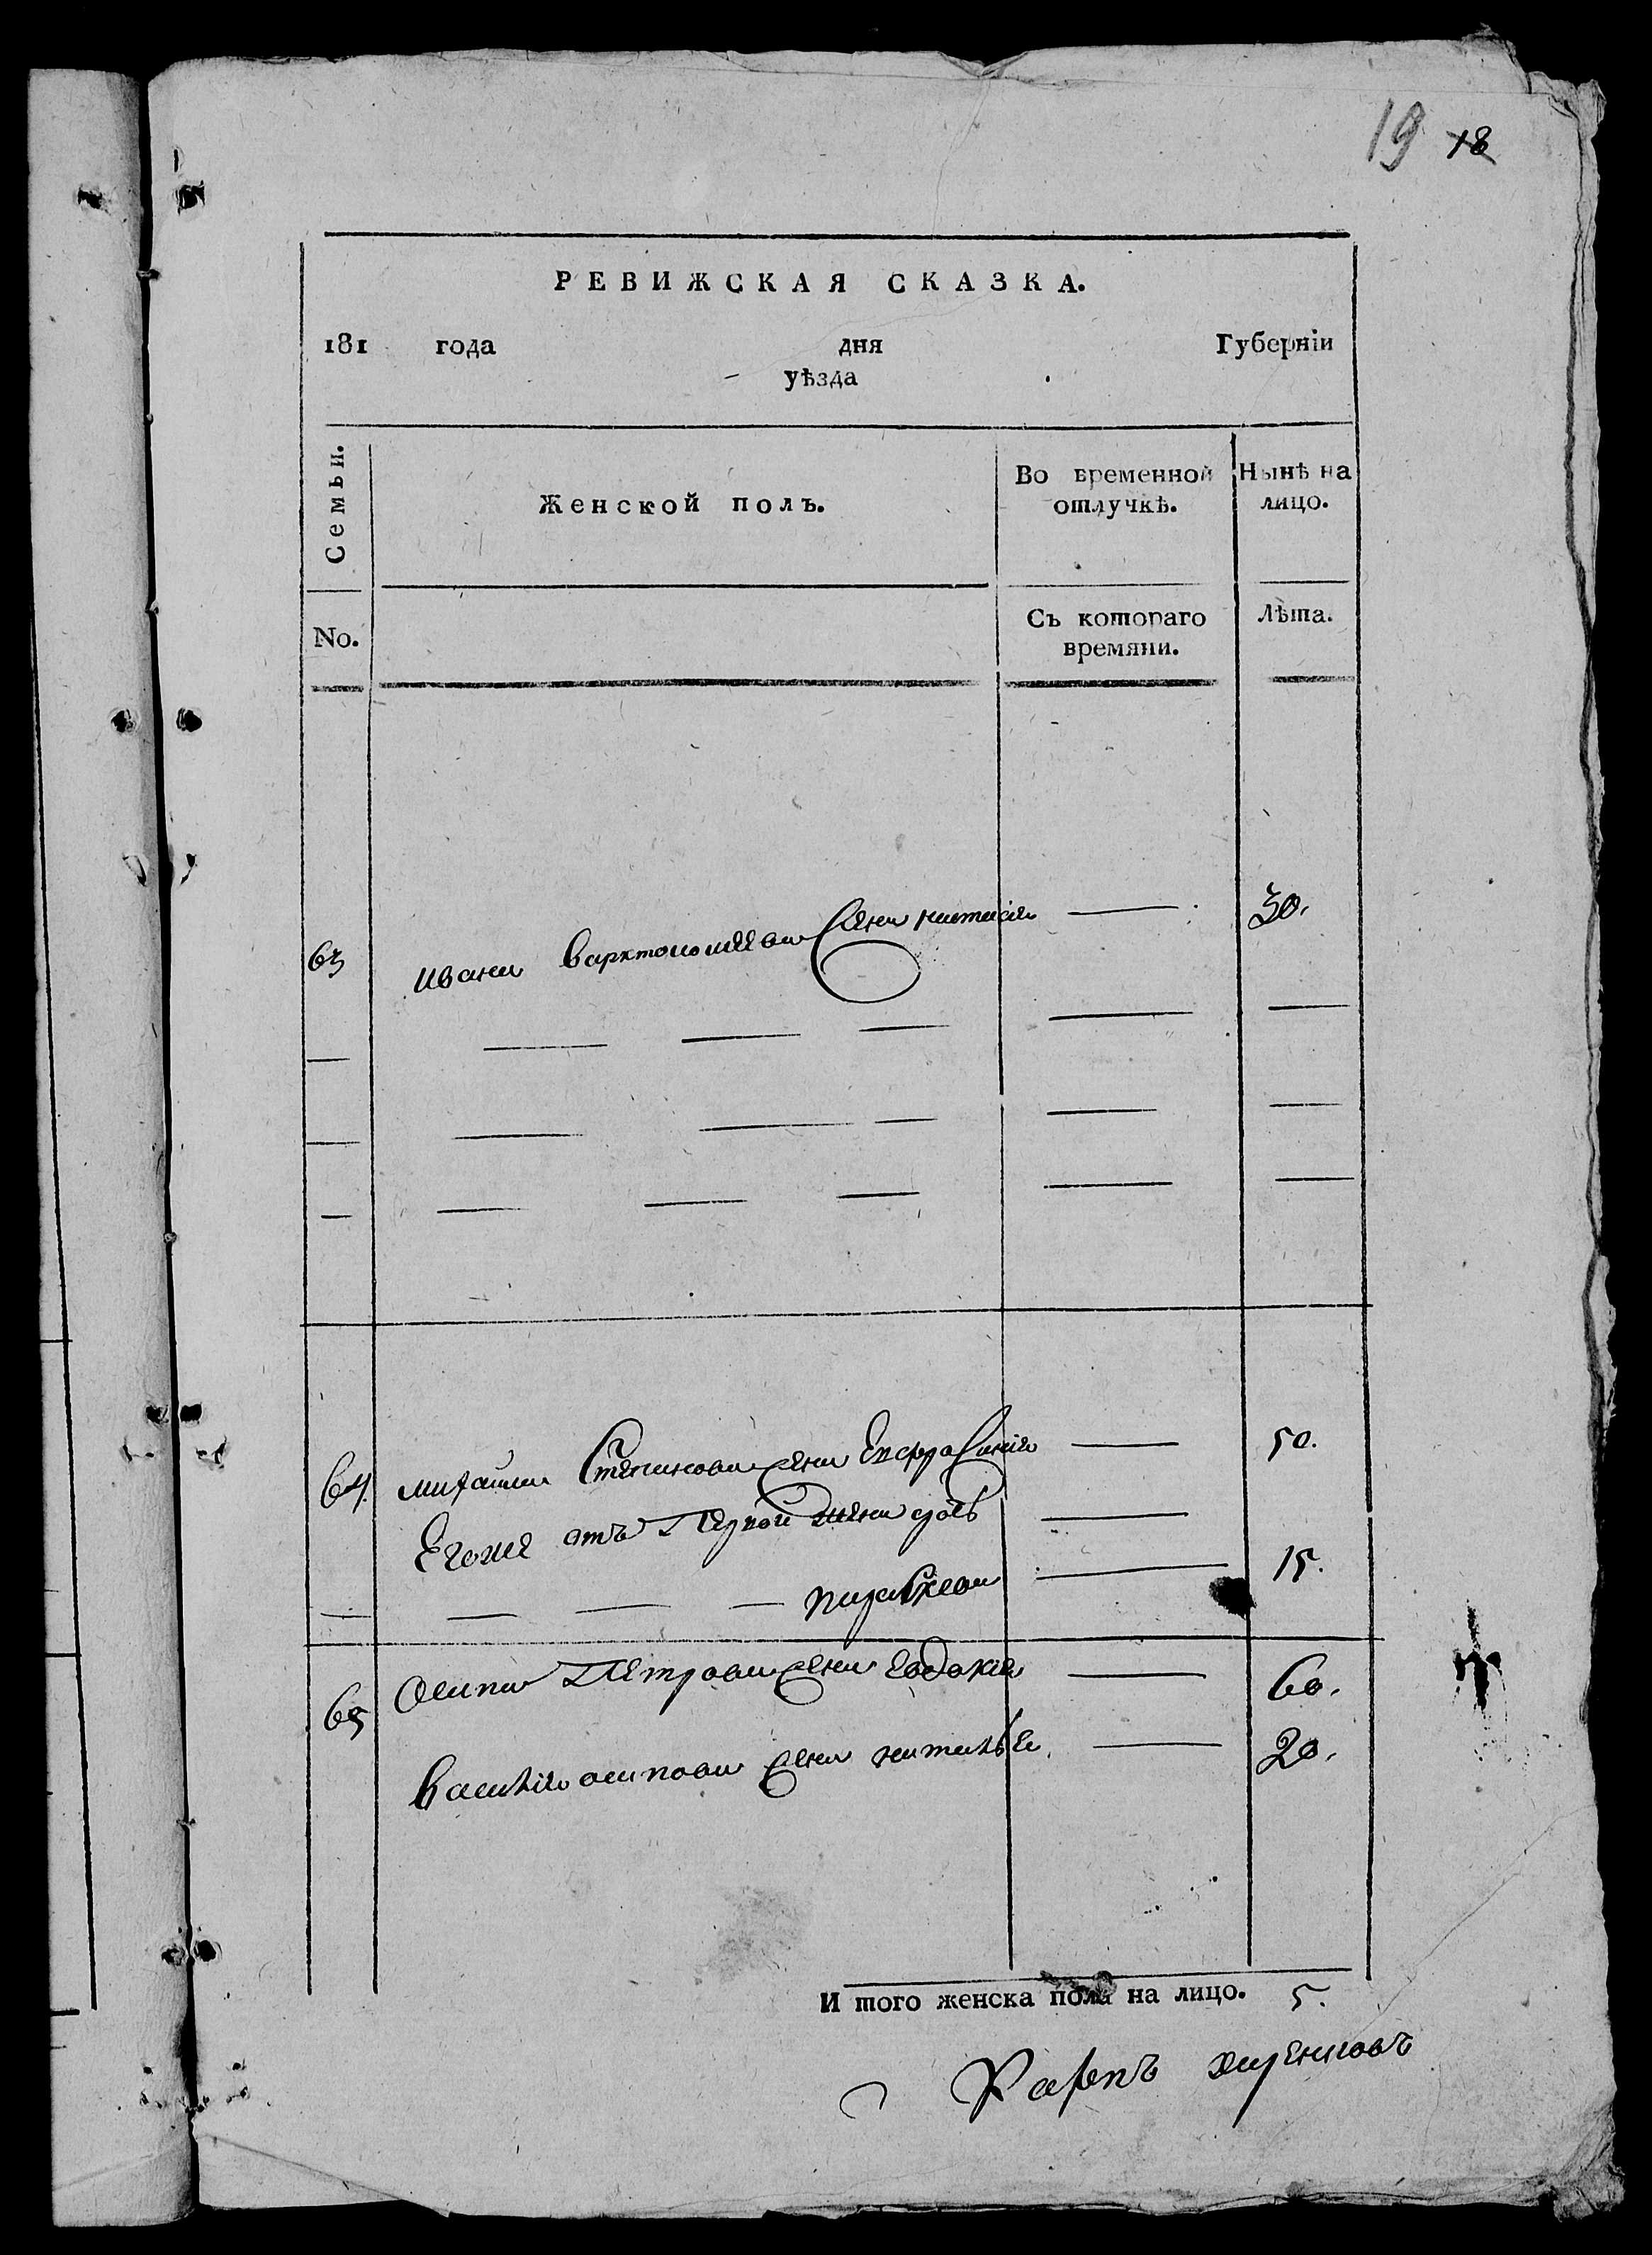 19 18
РЕВИЖСКАЯ СКАЗКА.
181 года дня Губерніи
уѣзда
Семьи.
Женской полъ.
Во временной отлучкѣ.
Нынѣ на лицо.
No.
Съ котораго времяни.
Лѣта.
63 Ивана жена 30.
64. Михаила Степанова жена 50.
Егоже отъ первой жены
15.
65 Осипа Петрова жена Евдокия 60.
Василия Осипова жена 20.
И того женска пола на лицо. 5.